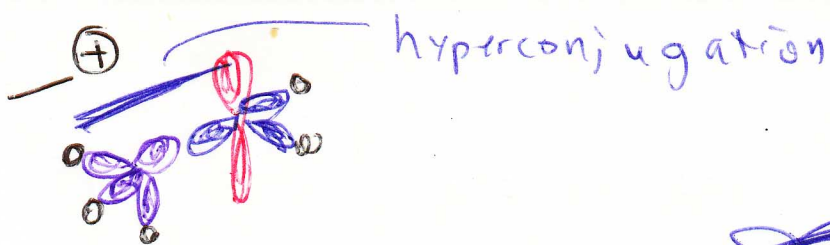 hyperconjugation
+